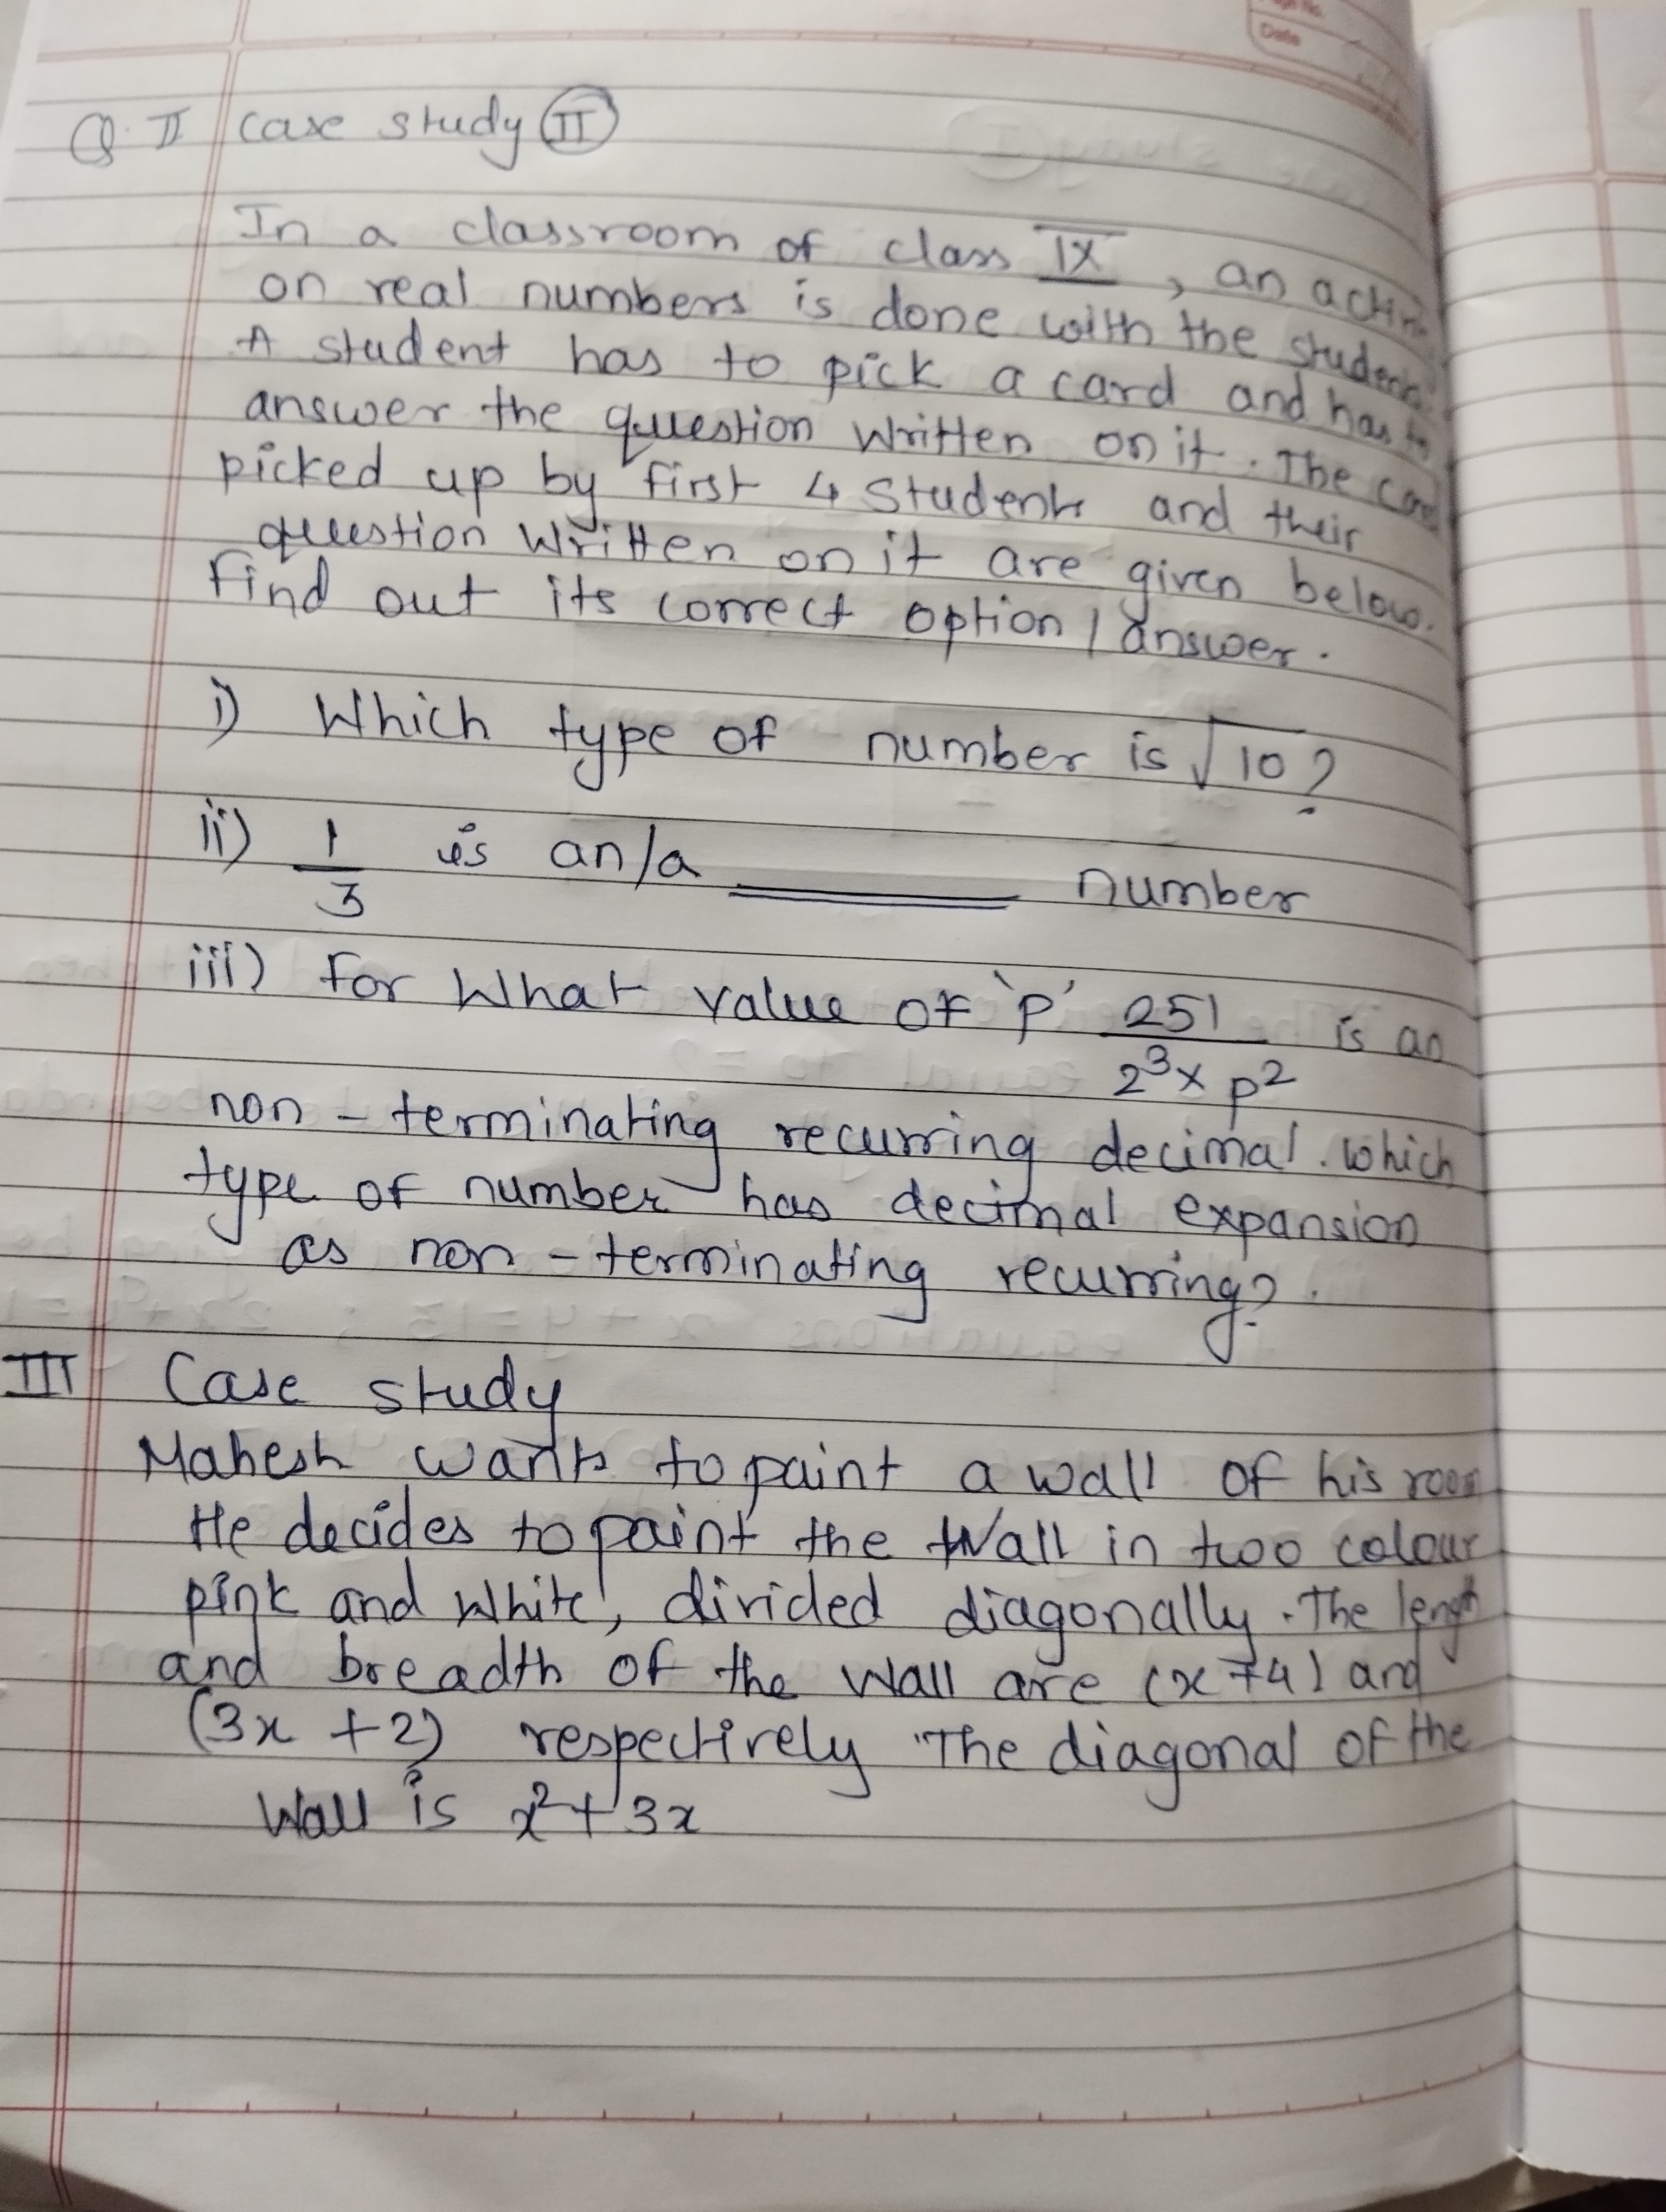 Date
Q. II Case study II
In a classroom of class IX, an
on real numbers is done with the
A student has to pick a card and has to
answer the question written on it. The
picked up by first 4 Students and their
question written on it are given below.
Find out its correct option / answer.
i) Which type of number is √10?
ii) 1/3 is an/a ______ number
iii) For What value of 'p' 251/2³×p² is an
non-terminating recurring decimal. which
type of number has decimal expansion
as non-terminating recurring?.
III Case study
Mahesh wants to paint a wall of his room
He decides to paint the Wall in two colour
pink and white, divided diagonally. The length
and breadth of the wall are (x+4) and
(3x+2) respectively The diagonal of the
Wall is x²+3x